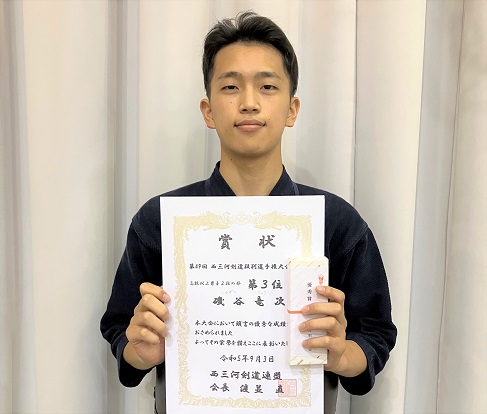 賞状
第69回 西三河剣道段別選手権大会
高校以上男子2段の部 第3位
磯谷竜次
本大会において頭書の優秀な成績を
おさめられました
よってその栄誉を讃えここに表彰いたし
令和5年9月3日
西三河剣道連盟
会長 渡並直
優秀賞